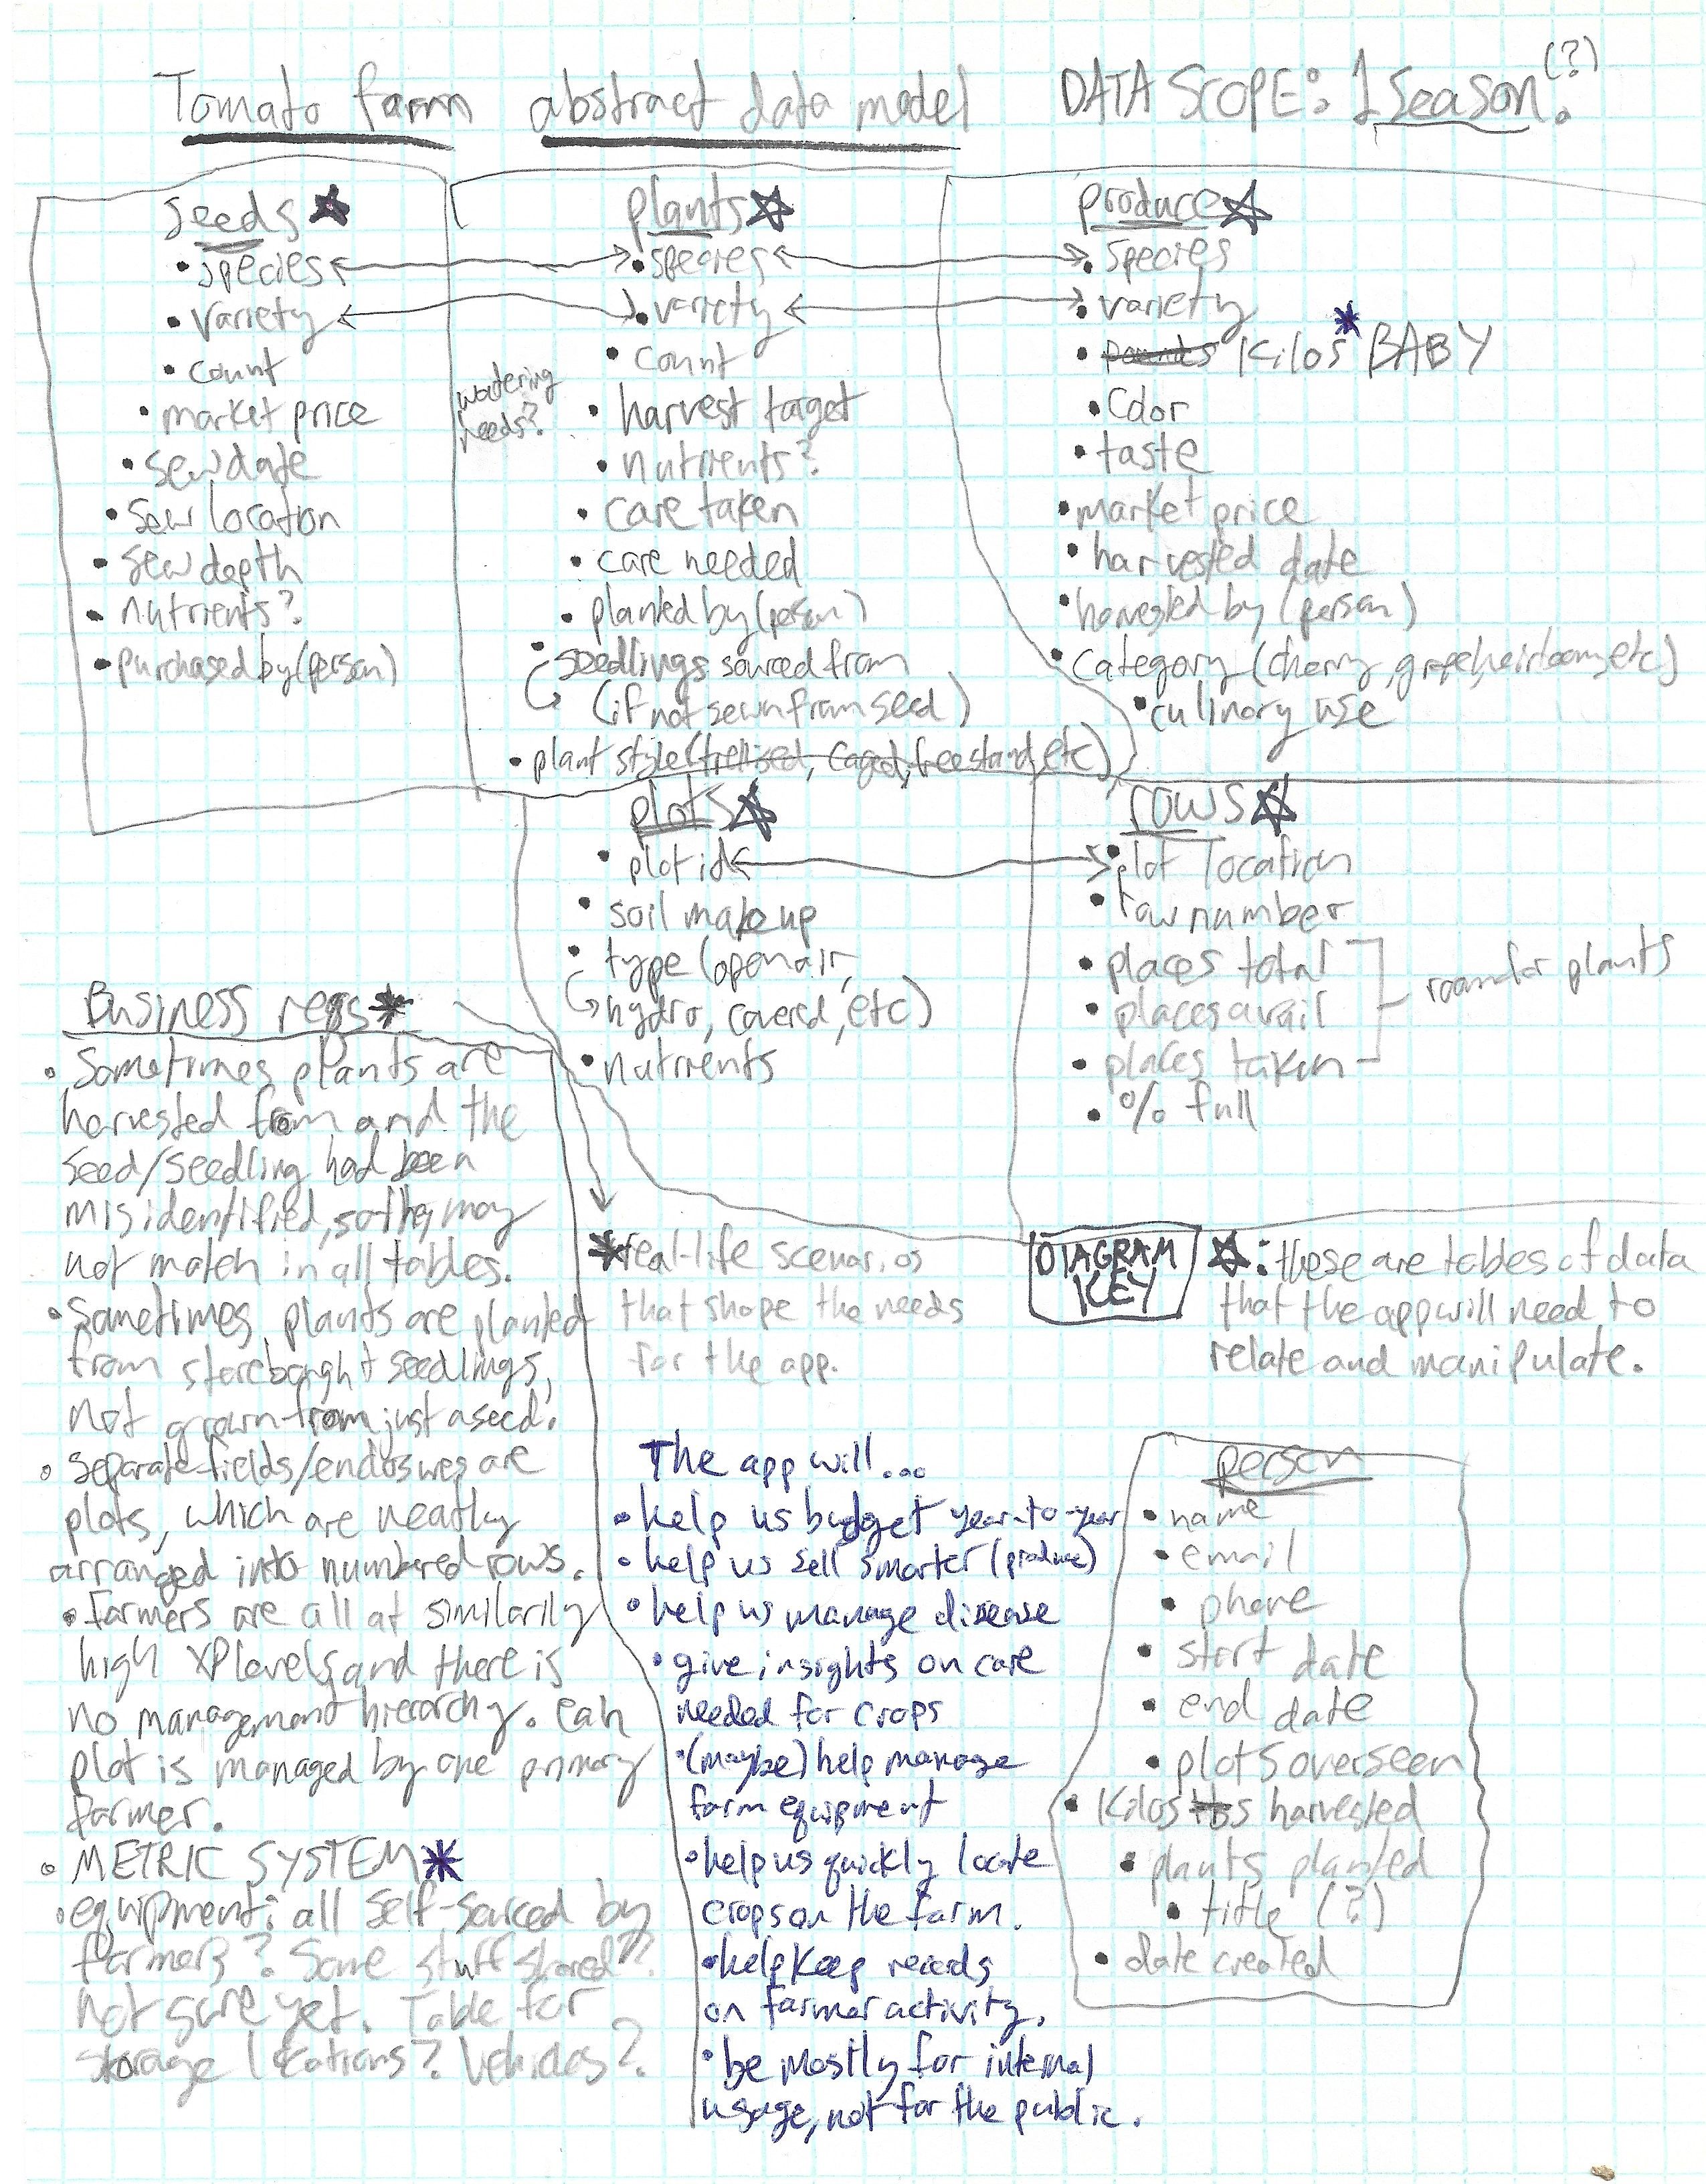 Tomato farm abstract data model
DATA SCOPE: 1 Season. (?)
seeds
• species
• variety
• count
• market price
• sew date
• sew location
• sew depth
• nutrients?
• purchased by (person)
plants
• species
• variety
• count
watering
needs?
• harvest target
• nutrients?
• care taken
• care needed
• planted by (person)
• seedlings sourced from
(if not sewn from seed)
• plant style (trellised, caged, freestand, etc)
produce
• species
• variety
• pounds Kilos* BABY
• Color
• taste
• market price
• harvested date
• harvested by (person)
• category (cherry, grape, heirloom, etc)
• culinary use
plots
• plot id
• soil makeup
• type (open air,
hydro, covered, etc)
• nutrients
rows
• plot location
• row number
• places total
• places avail
• places taken
room for plants
• % full
Business reqs*
• Sometimes plants are
harvested from and the
seed/seedling had been
misidentified, so they may
not match in all tables.
• Sometimes plants are planted
from storebought seedlings,
not grown from just a seed.
• separate fields/enclosures are
plots, which are neatly
arranged into numbered rows.
• Farmers are all at similarily
high XP levels, and there is
no management hierarchy. Eah
plot is managed by one primary
farmer.
• METRIC SYSTEM*
• equipment: all self-sourced by
farmers? Some stuff shared?
not sure yet. Table for
storage locations? Vehicles?
*real-life scenarios
that shape the needs
for the app.
DIAGRAM
KEY
☆: these are tables of data
that the app will need to
relate and manipulate.
The app will...
• help us budget year-to-year
• help us sell smarter (produce)
• help us manage disease
• give insights on care
needed for crops
• (maybe) help manage
farm equipment
• help us quickly locate
crops on the farm.
• help keep records
on farmer activity.
• be mostly for internal
usage, not for the public.
person
• name
• email
• phone
• start date
• end date
• plots overseen
• Kilos lbs harvested
• plants planted
• title (?)
• date created